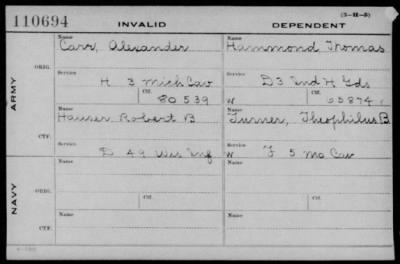 110694 INVALID DEPENDENT (3-H-5)
Name Name
Carr, Alexander Hammond Thomas
ORIG.
Service Service
H 3 Mich Cav D 3 Ind H Gds
Ctf. Ctf.
80539 W 65874
ARMY
Name Name
Hauser Robert B Turner, Theophilus B.
CTF.
Service Service
D 49 Wis Inf W F 5 Mo Cav
Name Name
ORIG. Ctf. Ctf.
NAVY
Name Name
CTF.